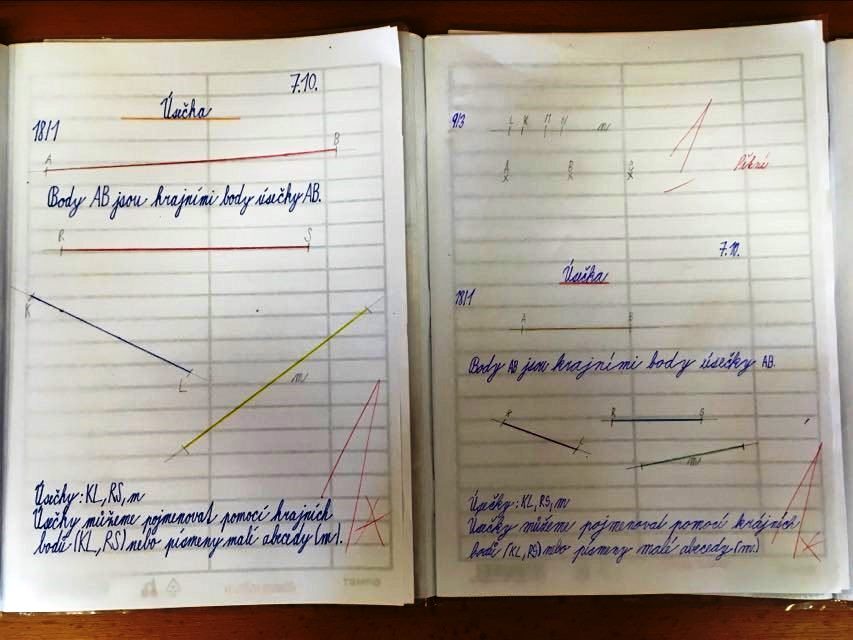 7.10.
Úsečka
18/1
A B
Body AB jsou krajními body úsečky AB.
R S
K
L
m
Úsečky: KL, RS, m
Úsečky můžeme pojmenovat pomocí krajních
bodů (KL, RS) nebo písmeny malé abecedy (m).
9/3
L K M m
A B
Pěkné
7.10.
Úsečka
18/1
A B
Body AB jsou krajními body úsečky AB.
K R S
L
m
Úsečky: KL, RS, m
Úsečky můžeme pojmenovat pomocí krajních
bodů (KL, RS) nebo písmeny malé abecedy (m.)